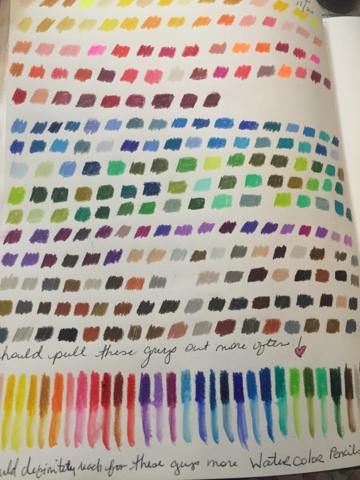 11/20
hould pull these guys out more often!
uld definitely reach for these guys more WaterColor Pencils